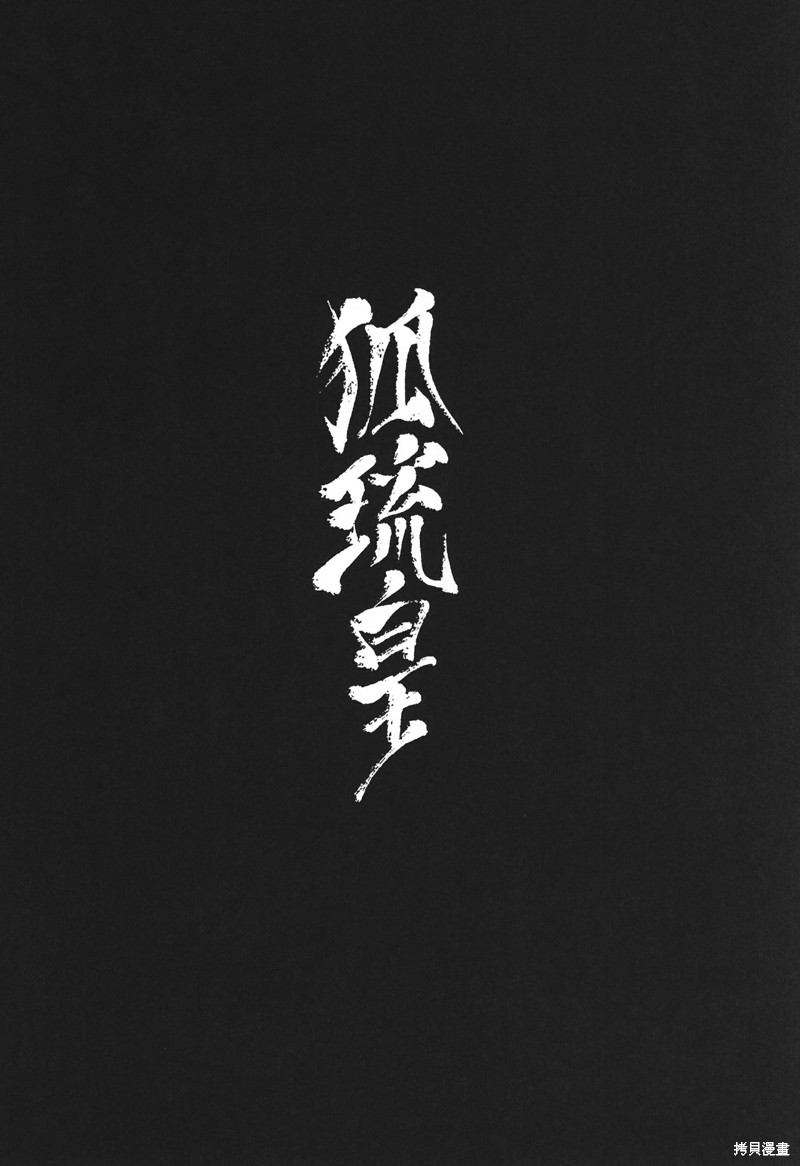 狐琉皇
拷貝漫畫